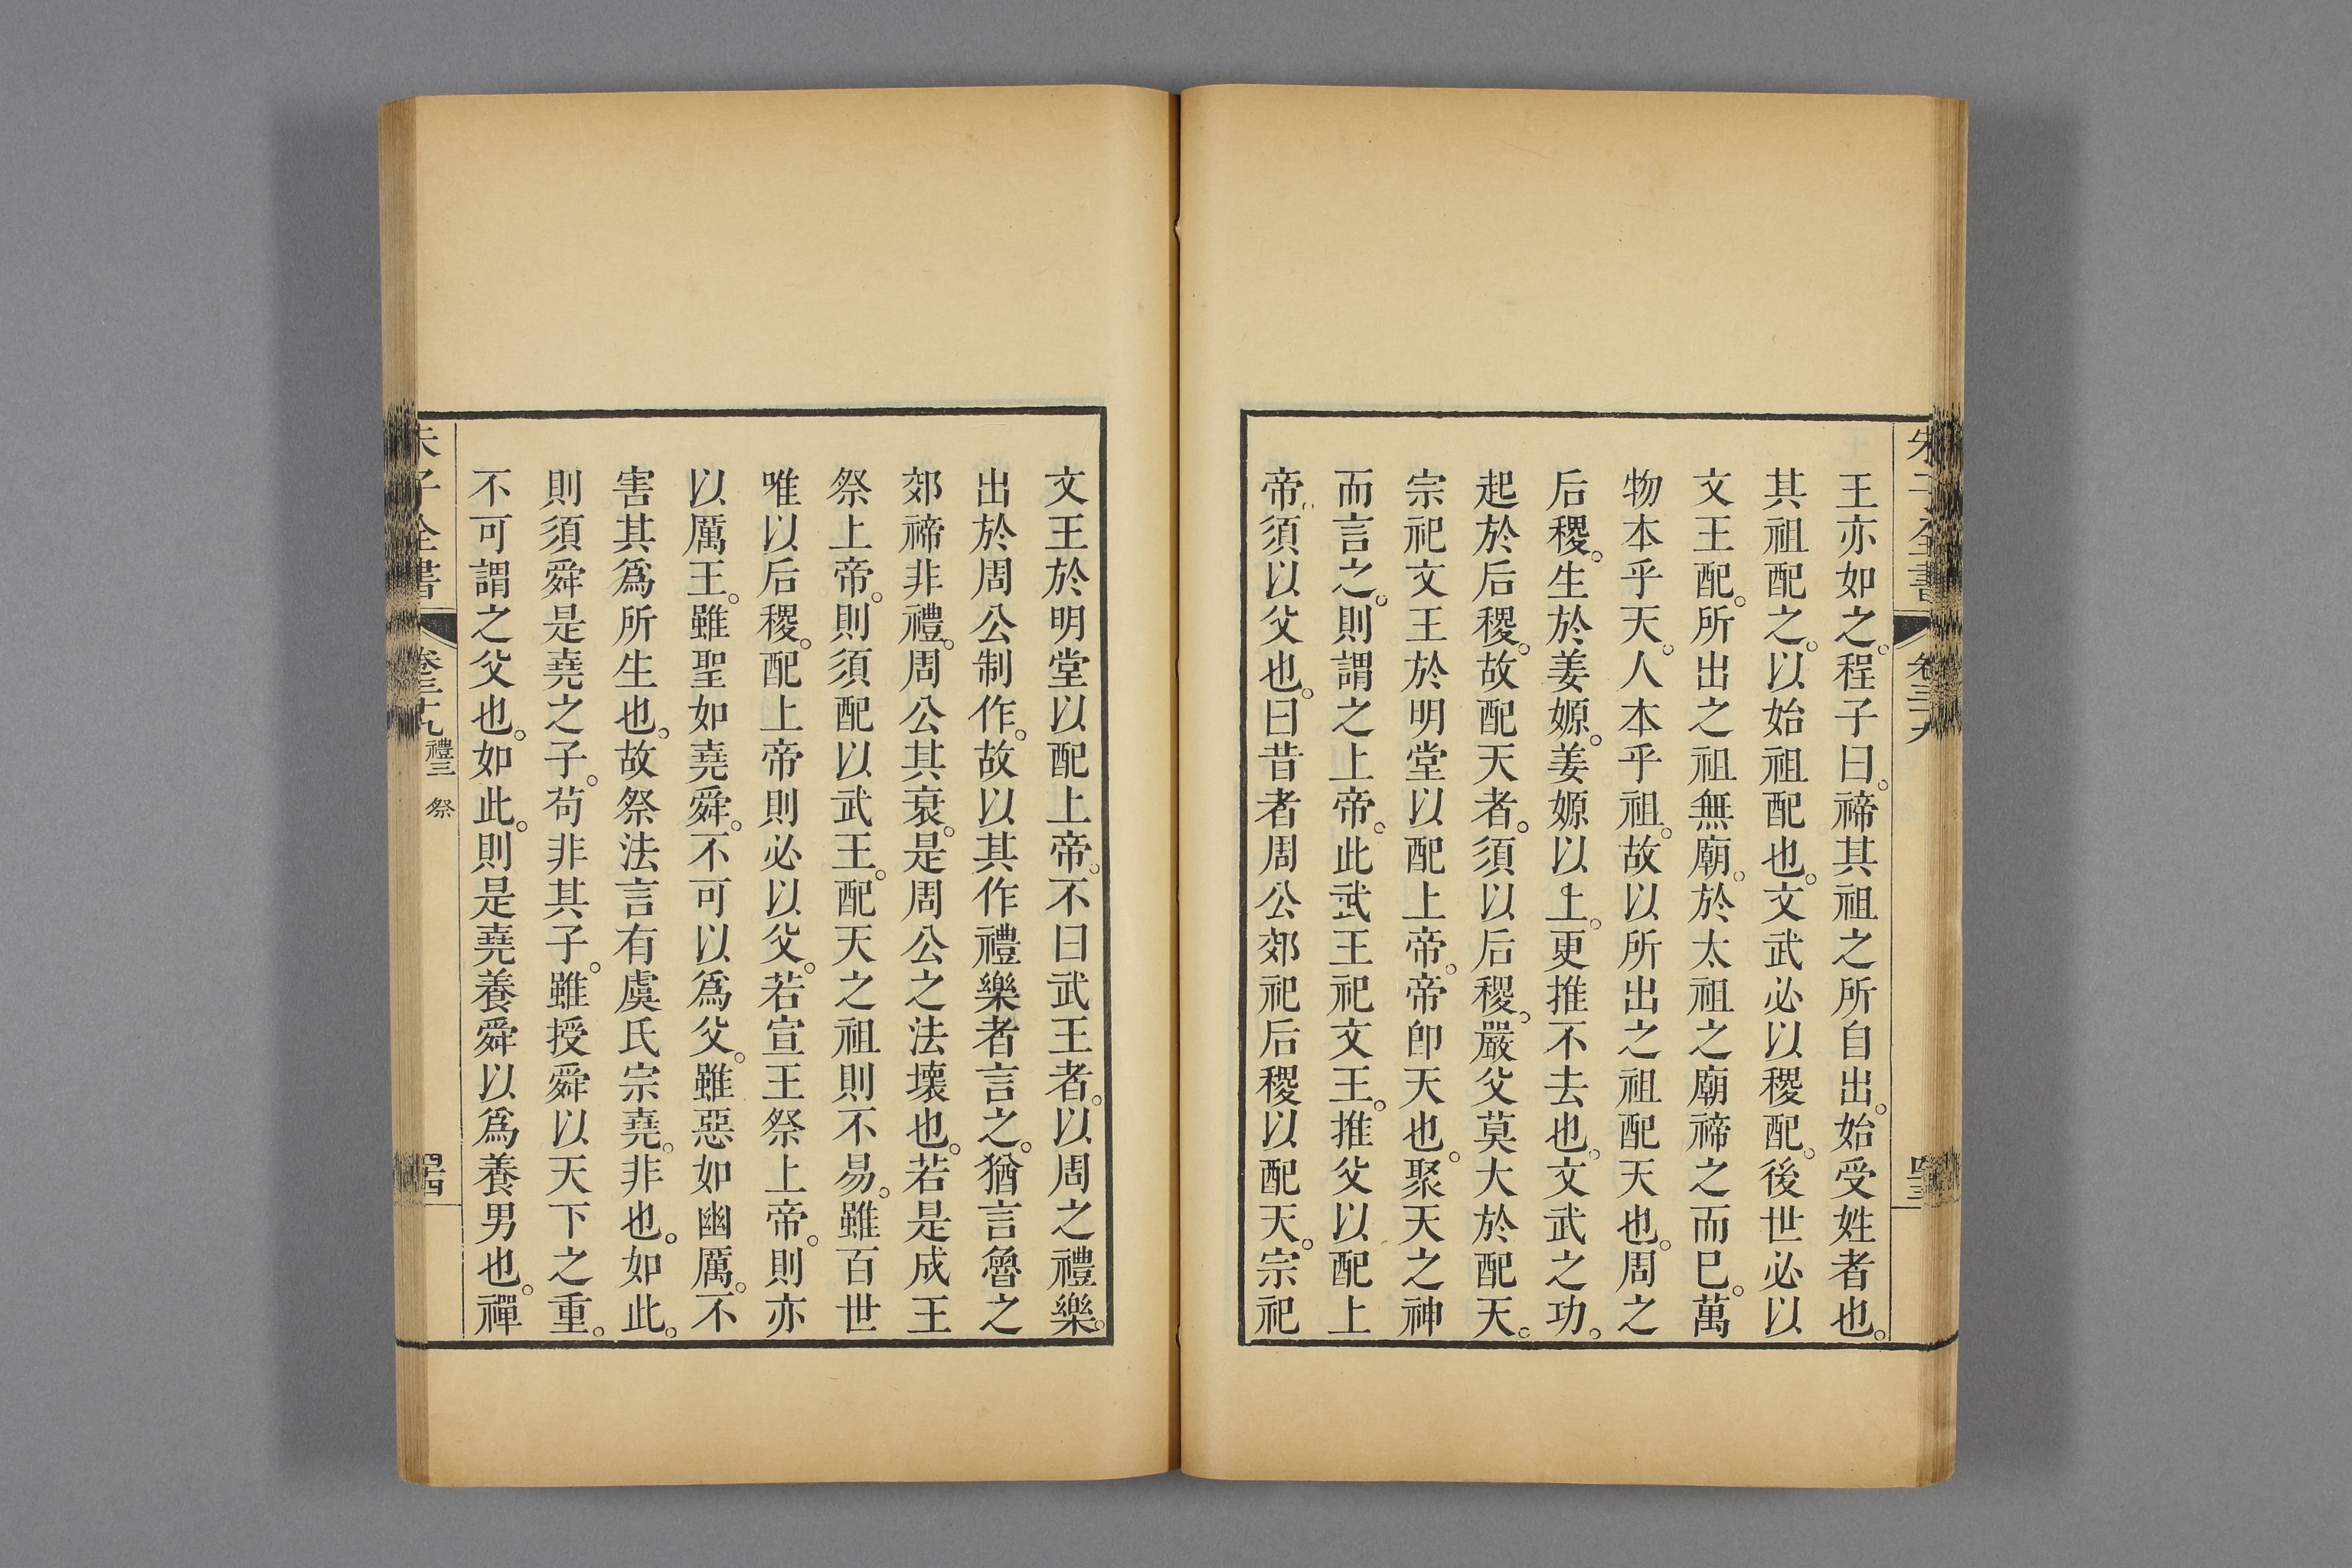 朱子全書 卷三十九 四十三
王亦如之。程子曰。禘其祖之所自出。始受姓者也。
其祖配之。以始祖配也。文武必以稷配。後世必以
文王配。所出之祖無廟。於太祖之廟禘之而已。萬
物本乎天。人本乎祖。故以所出之祖配天也。周之
后稷。生於姜嫄。姜嫄以上。更推不去也。文武之功。
起於后稷。故配天者。須以后稷。嚴父莫大於配天。
宗祀文王於明堂以配上帝。帝卽天也。聚天之神
而言之。則謂之上帝。此武王祀文王。推父以配上
帝。須以父也。曰昔者周公郊祀后稷以配天。宗祀
文王於明堂以配上帝。不曰武王者。以周之禮樂。
出於周公制作。故以其作禮樂者言之。猶言魯之
郊禘非禮。周公其衰。是周公之法壞也。若是成王
祭上帝。則須配以武王。配天之祖則不易。雖百世
唯以后稷。配上帝則必以父。若宣王祭上帝。則亦
以厲王。雖聖如堯舜。不可以爲父。雖惡如幽厲。不
害其爲所生也。故祭法言有虞氏宗堯。非也。如此。
則須舜是堯之子。苟非其子。雖授舜以天下之重。
不可謂之父也。如此。則是堯養舜以爲養男也。禪
朱子全書 卷三十九 禮三 祭 四十四